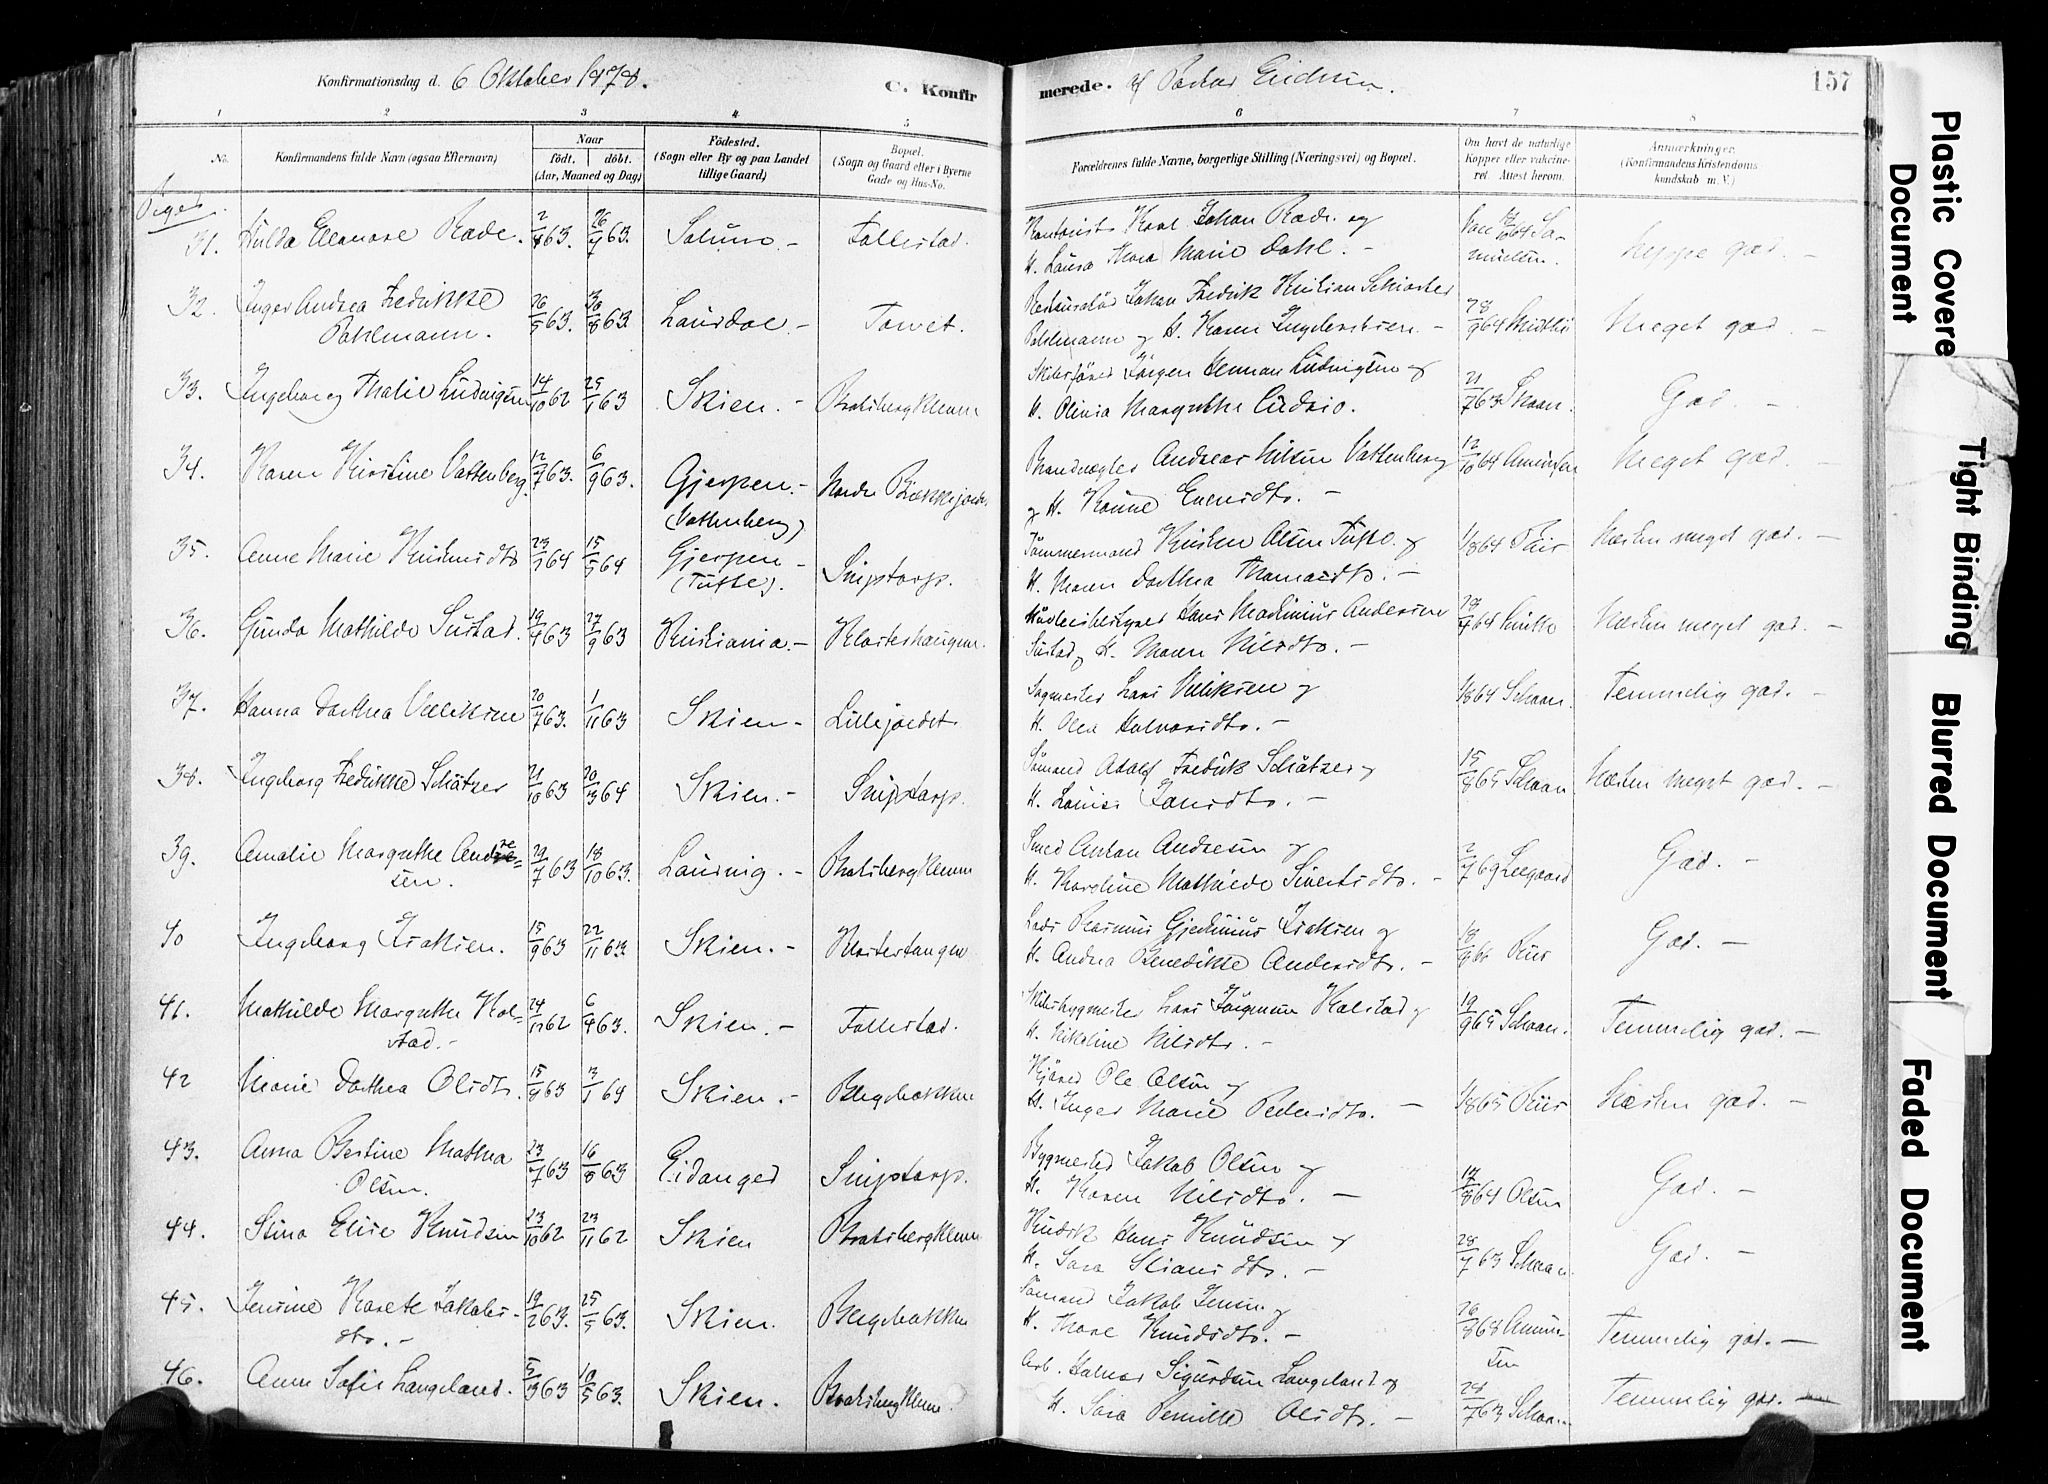 Konfirmationsdag d. 6 Oktober 1878. C. Konfir
merede. af Pastor Eriksen. 157
1 2 3 4 5 6 7 8
No. Konfirmandens fulde Navn (ogsaa Efternavn) Naar födt. döbt. (Aar, Maaned og Dag) Födested. (Sogn eller By og paa Landet tillige Gaard) Bopæl. (Sogn og Gaard eller i Byerne Gade og Hus-No. Forældrenes fulde Navne, borgerlige Stilling (Næringsvei) og Bopæl. Om havt de naturlige Kopper eller vakcineret. Attest herom. Anmærkninger. (Konfirmandens Kristendomskundskab m. V.)
Piger.
31. Hulda Eleonore Rode. 2/4 63. 26/7 63. Solum - Follestad.
Kontorist Karl Johan Rode og
H. Laura Thora Marie Dahl. -
meget god. -
32. Inger Andrea Fredrikke Pohlmann. 26/5 63. 30/8 63. Laurdal - Tomet.
Restauratör Johan Fredrik Kristian
Pohlmann og H. Karen Ingebretsen. -
28/9 64 Meget god. -
33. Ingeborg Thalie Ludvigsen 14/10 62 25/1 63 Skien. - Bratsbergkleven
Skibsförer Jörgen Herman Ludvigsen og
H. Olivia Margrethe
21/7 63 Schaan. God. -
34. Karen Kirstine Vattenberg. 12/7 63. 6/9 63. Gjerpen. - (Vattenberg) Nordre
Brandvægter Andreas Nilsen Vattenberg
og H. Evensdtr. -
12/10 64 Amundsen Meget god.
35. Anne Marie Kristensdtr 23/1 64 15/5 64 Gjerpen - (Tufte). Sniptorp.
Tömmermand Kristen Olsen Tufte og
H. Maren Dorthea Thomasdtr. -
1/8 64 Næsten meget god. -
36. Gunda Mathilde Sustad. 19/4 63 27/9 63 Kristiania. - Klosterhaugen.
Hans Maximius Andersen
Sustad og H. Maren Nilsdtr. -
Næsten meget god. -
37. Hanna Dorthea Velliksen 20/7 63. 1/11 63 Skien - Lillejordet
Sagmester Lars Velliksen og
H. Olea Halvorsdtr. -
1/8 64 Schaan. Temmelig god. -
38. Ingeborg Fredrikke Schötzer 21/10 63 20/3 64 Skien. - Sniptorp.
Sömand Adolf Fredrik Schötzer og
H. Louise Jansdtr. -
15/8 65 Schaan Næsten meget god. -
39. Amalie Margrethe Andresen. 29/7 63 18/10 63. Laurvig. - Bratsbergkleven
Smed Anton Andresen og
H. Karoline Mathilde Sivertsdtr. -
2/7 69 Leegaard God. -
40 Ingeborg Isaksen. 15/9 63 22/11 63. Skien. - Klostertangen
Lods Rasmus Gjedinius Isaksen og
H. Andrea Benedikte Andersdtr. -
God. -
41. Mathilde Margrethe Kolstad. - 24/12 62 6/4 63. Skien. - Follestad.
Skibsbygmester Lars Jörgensen Kolstad og
H. Nikoline Nilsdtr. -
19/9 65 Schaan. Temmelig god. -
42 Marie Dorthea Olsdtr. 15/8 63 3/1 64 Skien. - Bergsbakken
Ole Olsen og
H. Inger Marie Pedersdtr. -
1/8 65 Riis Næsten god. -
43. Anna Bertine Mathea Olsen. 23/7 63 16/8 63 Eidanger Sniptorp.
Bygmester Jakob Olsen og
H. Karen Nilsdtr. -
64 Olsen God. -
44. Stina Elise Knudsen 23/10 62 23/11 62 Skien Bratsbergkleven
Hans Knudsen og
H. Sara Stiansdtr. -
28/7 63 Schaan. God. -
45. Jensine Karete Jakobsdtr. - 19/2 63. 25/5 63. Skien. Bergsbakken
Sömand Jakob Jensen og
H. Thore Knudsdtr. -
26/8 68 Amundsen Temmelig god. -
46. Anne Sofie Langeland. 5/3 63 10/5 63. Skien. Bratsbergkleven.
Arb. Halvor Sigurdsen Langeland og
H. Sara Pernille Olsdtr. -
28/7 63 Schaan. Temmelig god. -
Plastic Covere Document
Tight Binding
Blurred Document
Faded Document